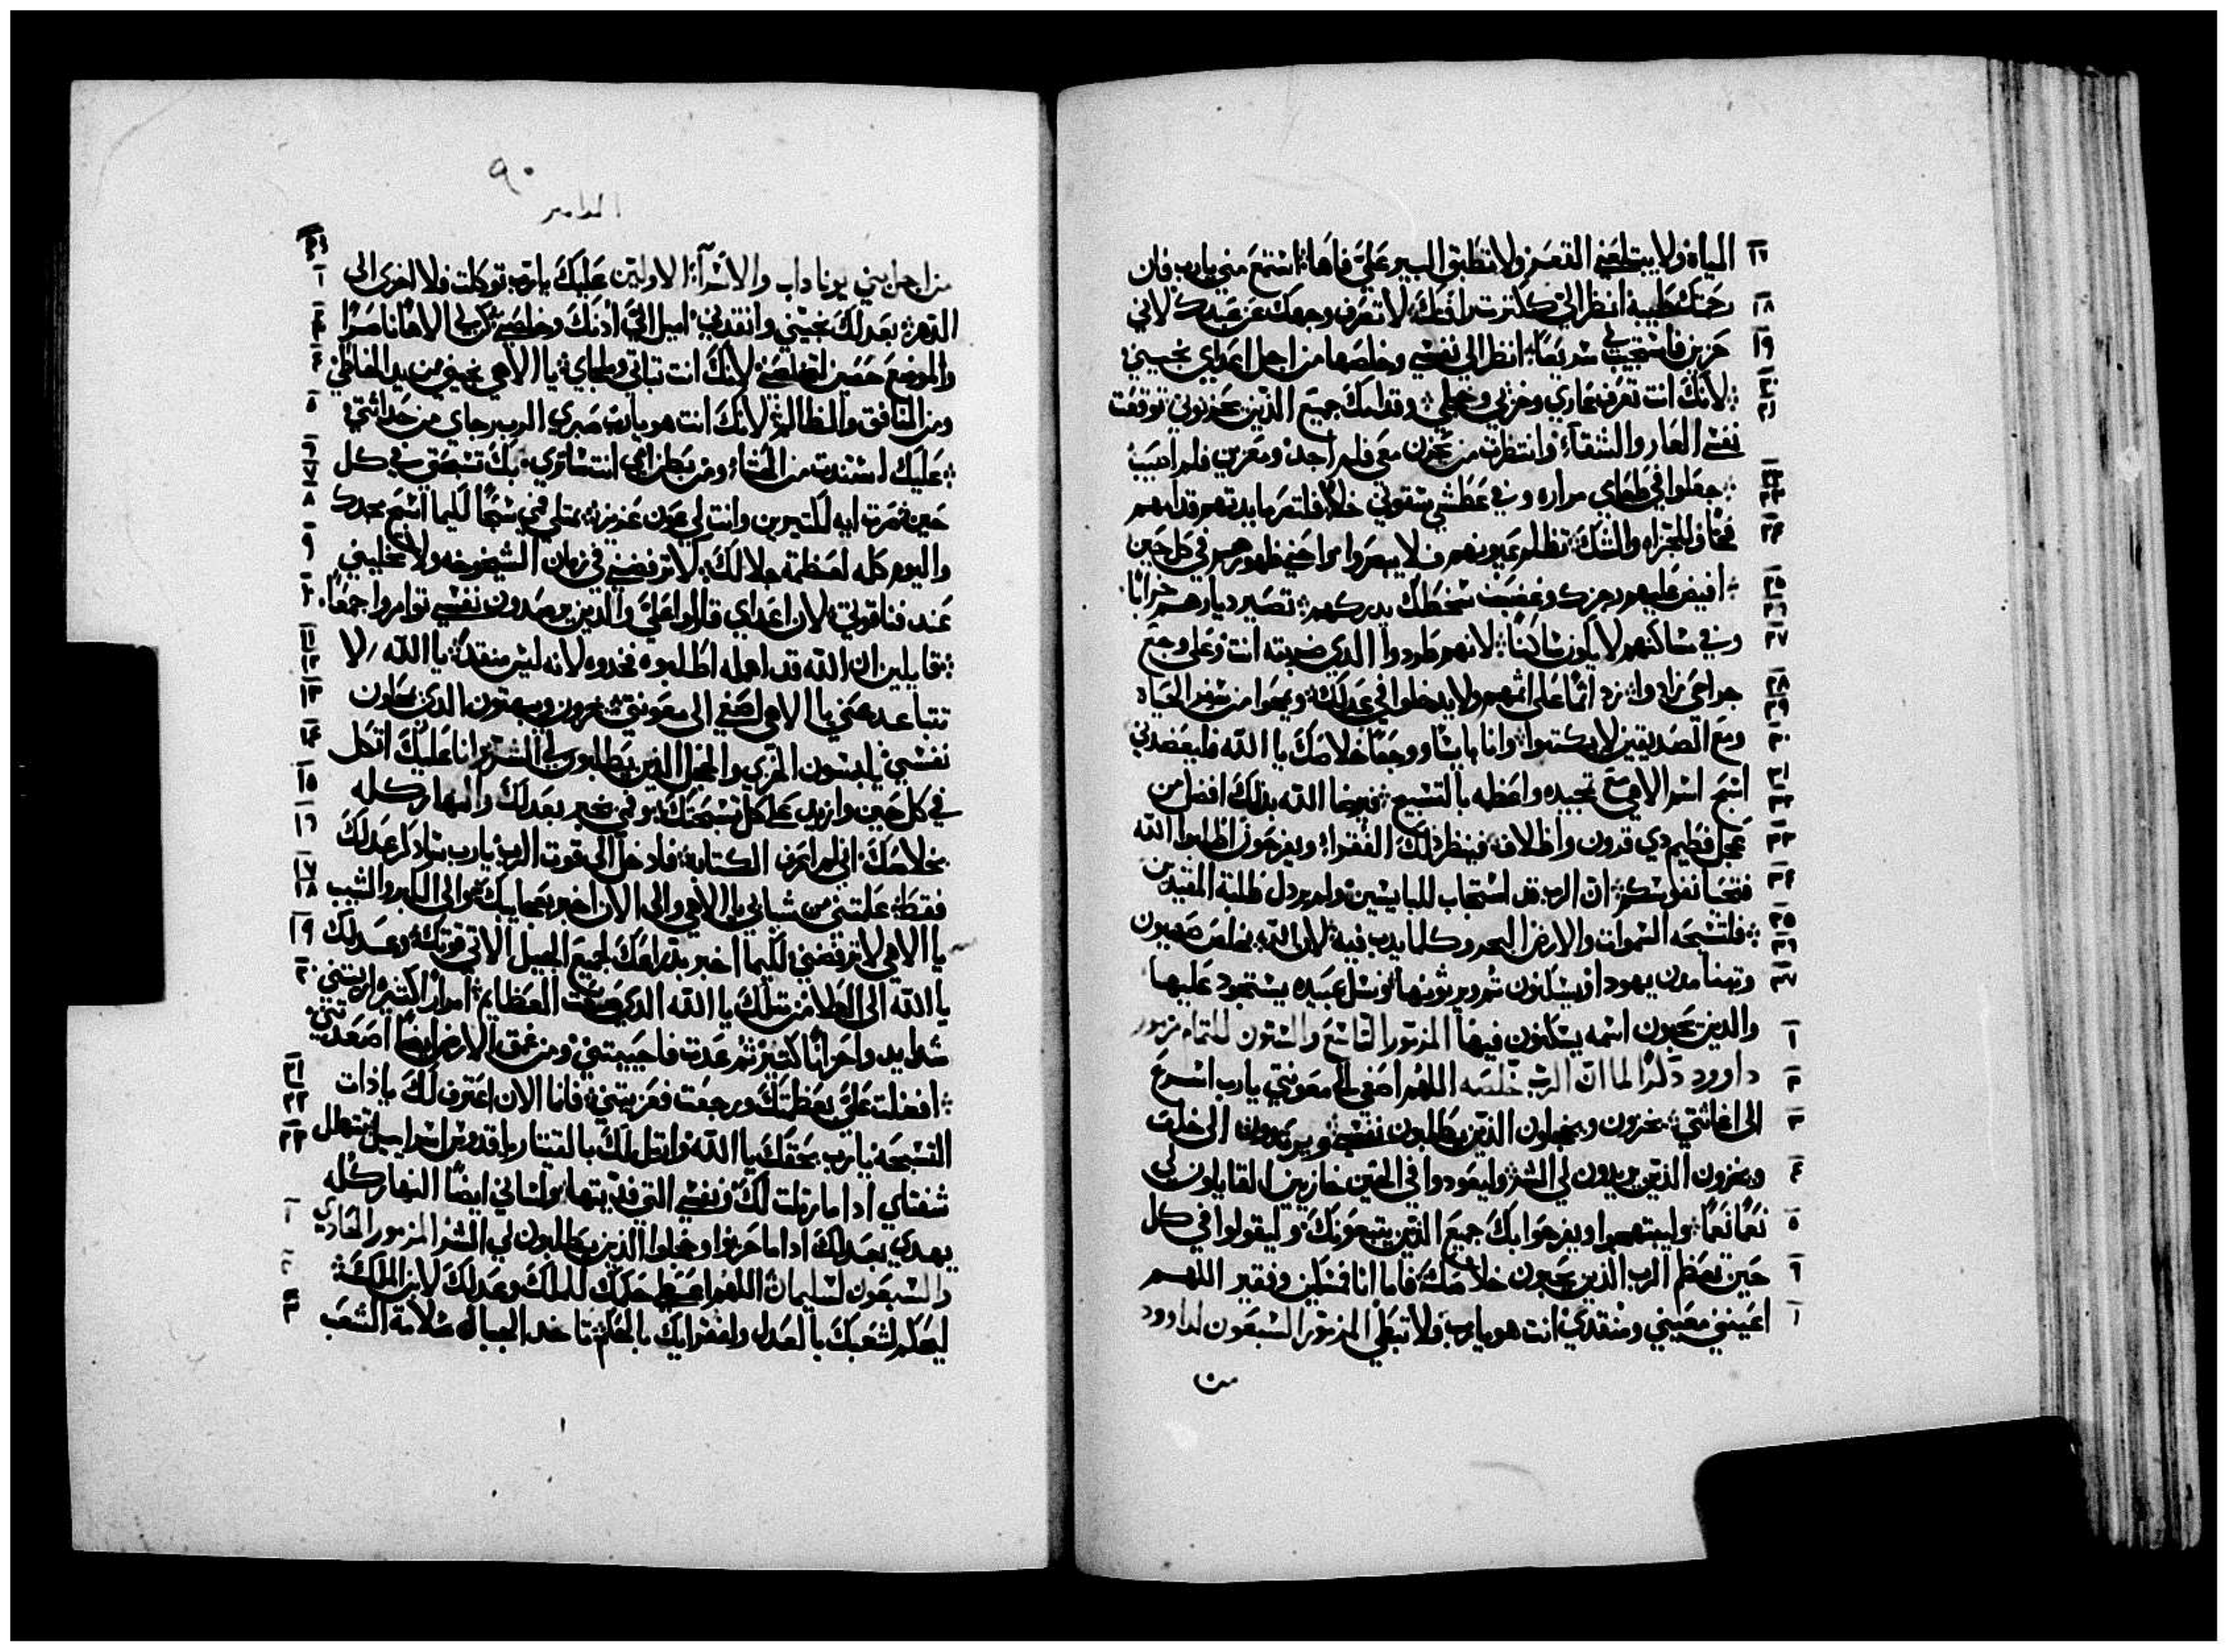 المياه ولا يبتلعني القعر ولا تطبق البير عليّ فاها استمع مني يارب فان
رحمتك طيبة انظر اليّ ككثرت رافتك لا تصرف وجهك عن عبدك لاني
حزين فاستجيب لي سريعًا انظر الي نفسي وخلصها من اجل اعداي نجيني
لانك انت تعرف عاري وخزيي وخجلي وقدامك جميع الذين يحزنوني توقعت
نفسي العار والشقاء وانتظرت من يحزن معي فلم اجد ومعزين فلم اصيب
جعلوا في طعامي مراره وفي عطشي سقوني خلا فلتصر مايدتهم قدامهم
فخًا وللمجازاه والشك تظلم عيونهم فلا يبصروا واحني ظهورهم في كل حين
افيض عليهم رجزك وغضب سخطك يدركهم تصير ديارهم خرابًا
وفي مساكنهم لا يكون ساكنًا لانهم طردوا الذي ضربته انت وعلى وجع
جراحي زادوا زد اثمًا على اثمهم ولا يدخلوا في عدلك ويمحوا من سفر الحياه
ومع الصديقين لا يكتبوا وانا بايسًا ووجعًا خلاصك يا الله فليعضدني
اسبح اسم الاهي مع تمجيده واعظمه بالتسبيح فيرضا الله بذلك افضل من
عجل فطيم دي قرون واظلاف فينظر ذلك الفقراء ويفرحون اطلبوا الله
فتحيا نفوسكم ان الرب قد استجاب للبايسين ولم يردل طلبة المقيدين
فلتسبحه السموات والارض البحر وكلما يدب فيه لان الله يخلص صهيون
وتبنا مدن يهودا فيسكنون ثم ويرثونها ونسل عبيده يستحود عليها
والذين يحبون اسمه يسكنون فيها المزمور التاسع والستون للتمام مزمور
داوود ذكرًا لما ان الرب خلصه اللهم اصغي الى معونتي يارب اسرع
الى اغاثتي يخزون ويخجلون الذين يطلبون نفسي ويرتدون الى خلف
ويخزون الذين يريدون لي الشر وليعودوا في الحين خازيين القايلون لي
نعمًا نعمًا وليبتهجوا ويفرحوا بك جميع الذين يتبعونك وليقولوا في كل
حين تعظم الرب الذين يحبون خلاصك فاما انا فمسكين وفقير اللهم
اعينني معيني ومنقدي انت هو يارب ولا تبطي المزمور السبعون لداوود
من
٩٠
من اجل بني يوناداب والاسراء الاولين عليك يارب توكلت فلا اخزى الى
الدهر بعدلك نجيني وانقدني اميل اليّ ادنك وخلصني كن لي الاهًا ناصرًا
والموضع حصين لتخلصني لانك انت تباتي وملجاي يا الاهي نجيني من يد الخاطي
ومن المنافق والظالم لانك انت هو يارب صبري الرب رجاي من حداثتي
عليك استندت من الحشاء ومن بطن امي انت ساتري بك تسبحتي في كل
حين صرت ايه للكثيرين وانت لي عون عزيز يمتلي فمي سبحًا لكيما اسبح مجدك
واليوم كله لعظمة جلالك لا ترفضني في زمان الشيخوخه ولا تخليني
عند فنا قوتي لان اعداي قالوا عليّ والذين يرصدون نفسي توامروا جمعًا
قايلين ان الله قد اهمله اطلبوه فخدوه لانه ليس منقد يا الله لا
تتباعد عني يا الاهي اصغي الى معونتي يخزون ويبهتون الذين يمحلون
نفسي يلبسون الخزي والخجل الذين يطلبون لي الشر وانا عليك اتكل
في كل حين وازيد على كل تسبحتك وفمي يخبر بعدلك والنهار كله
بخلاصك اني لم اعرف الكتابه فادخل الى قوت الرب يارب ساذكر عدلك
فقط علمتني من شبابي يا الاهي والى الان اخبر بعجايبك والى الكبر والشيب
يا الاهي لا ترفضني لكيما اخبر بدراعك لجميع الجيل الاتي قوتك وعدلك
يا الله الى العلا من مثلك يا الله الذي صنعت العظايم امرار كثيره اريتني
شدايد واحزانًا كثير ثم عدت فاحييتني ومن عمق الارض ايضًا اصعدتني
افضلت عليّ بعظمتك ورجعت فعزيتني فانا الان اعترف لك بادات
التسبحه يارب بحقك يا الله وارتل لك بالقيتار ياقدوس اسراييل تتهلل
شفتاي ادا ما رتلت لك ونفسي التي فديتها ولساني ايضًا النهار كله
يهدي بعدلك ادا ما خزيوا وخجلوا الذين يطلبون لي الشر المزمور الحادي
والسبعون لسليمان اللهم اعطي حكمك للملك وعدلك لابن الملك
ليحكم لشعبك بالعدل ولفقرايك بالحكم تاخد الجبال سلامة الشعب